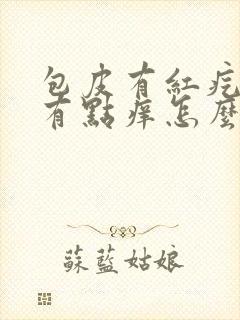 包皮有紅疙
有點痒怎麼
蘇藍姑娘